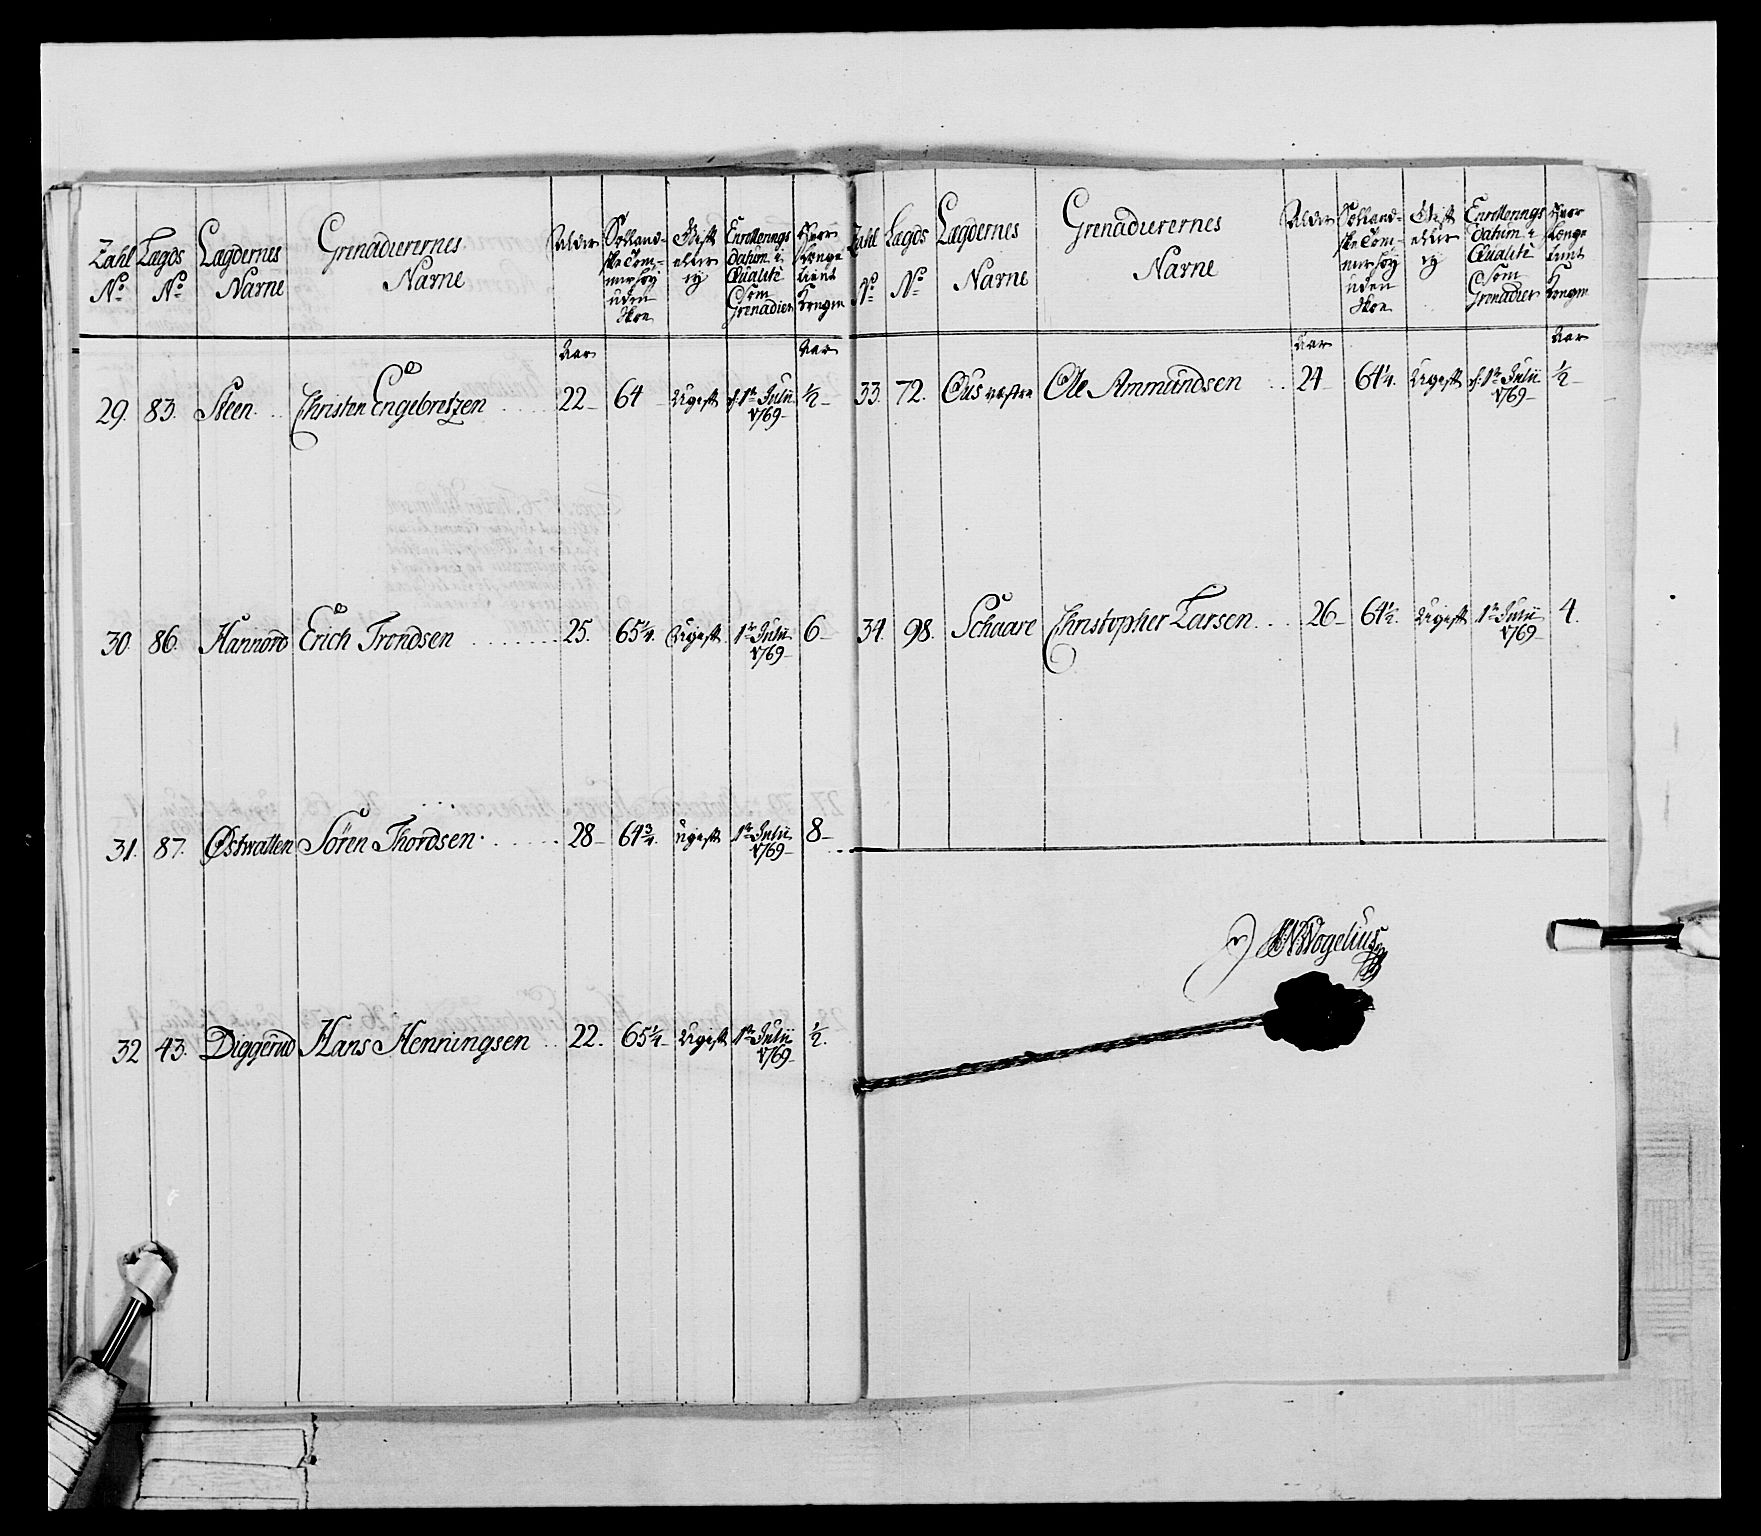 Zahl No Lægds No Lægdernes Navne Grenadeerernes Navne Alder Sollandske Tommer høy uden Skoe Gift eller ey Enrollerings Datum i Qualité som Grenadier Hvor længe tient Kongen
Aar Aar
29. 83. Steen Christen Engebretzen 22 64 Ugift d: 1te Julii 1769 ½
30 86. Hannord Erich Trondsen 25. 65¼ Ugift 1te Julii 1769 6
31. 87. Østwatten Sören Thordsen 28 64¾ ugift 1te Julii 1769 8
32 43. Diggerud Hans Henningsen 22. 65¼ Ugift 1te Julii 1769 ½.
Zahl No Lægds No Lægdernes Navne Grenadeerernes Navne Alder Sollandske Tommer høy uden Skoe Gift eller ey Enrollerings Datum i Qualité som Grenadier Hvor længe tient Kongen
Aar Aar
33. 72. Ous westre Ole Ammundsen 24 64¼. Ugift d: 1te Julii 1769 ½
34. 98. Schaare Christopher Larsen 26 64½ Ugift 1te Julii 1769 4.
Wogelius